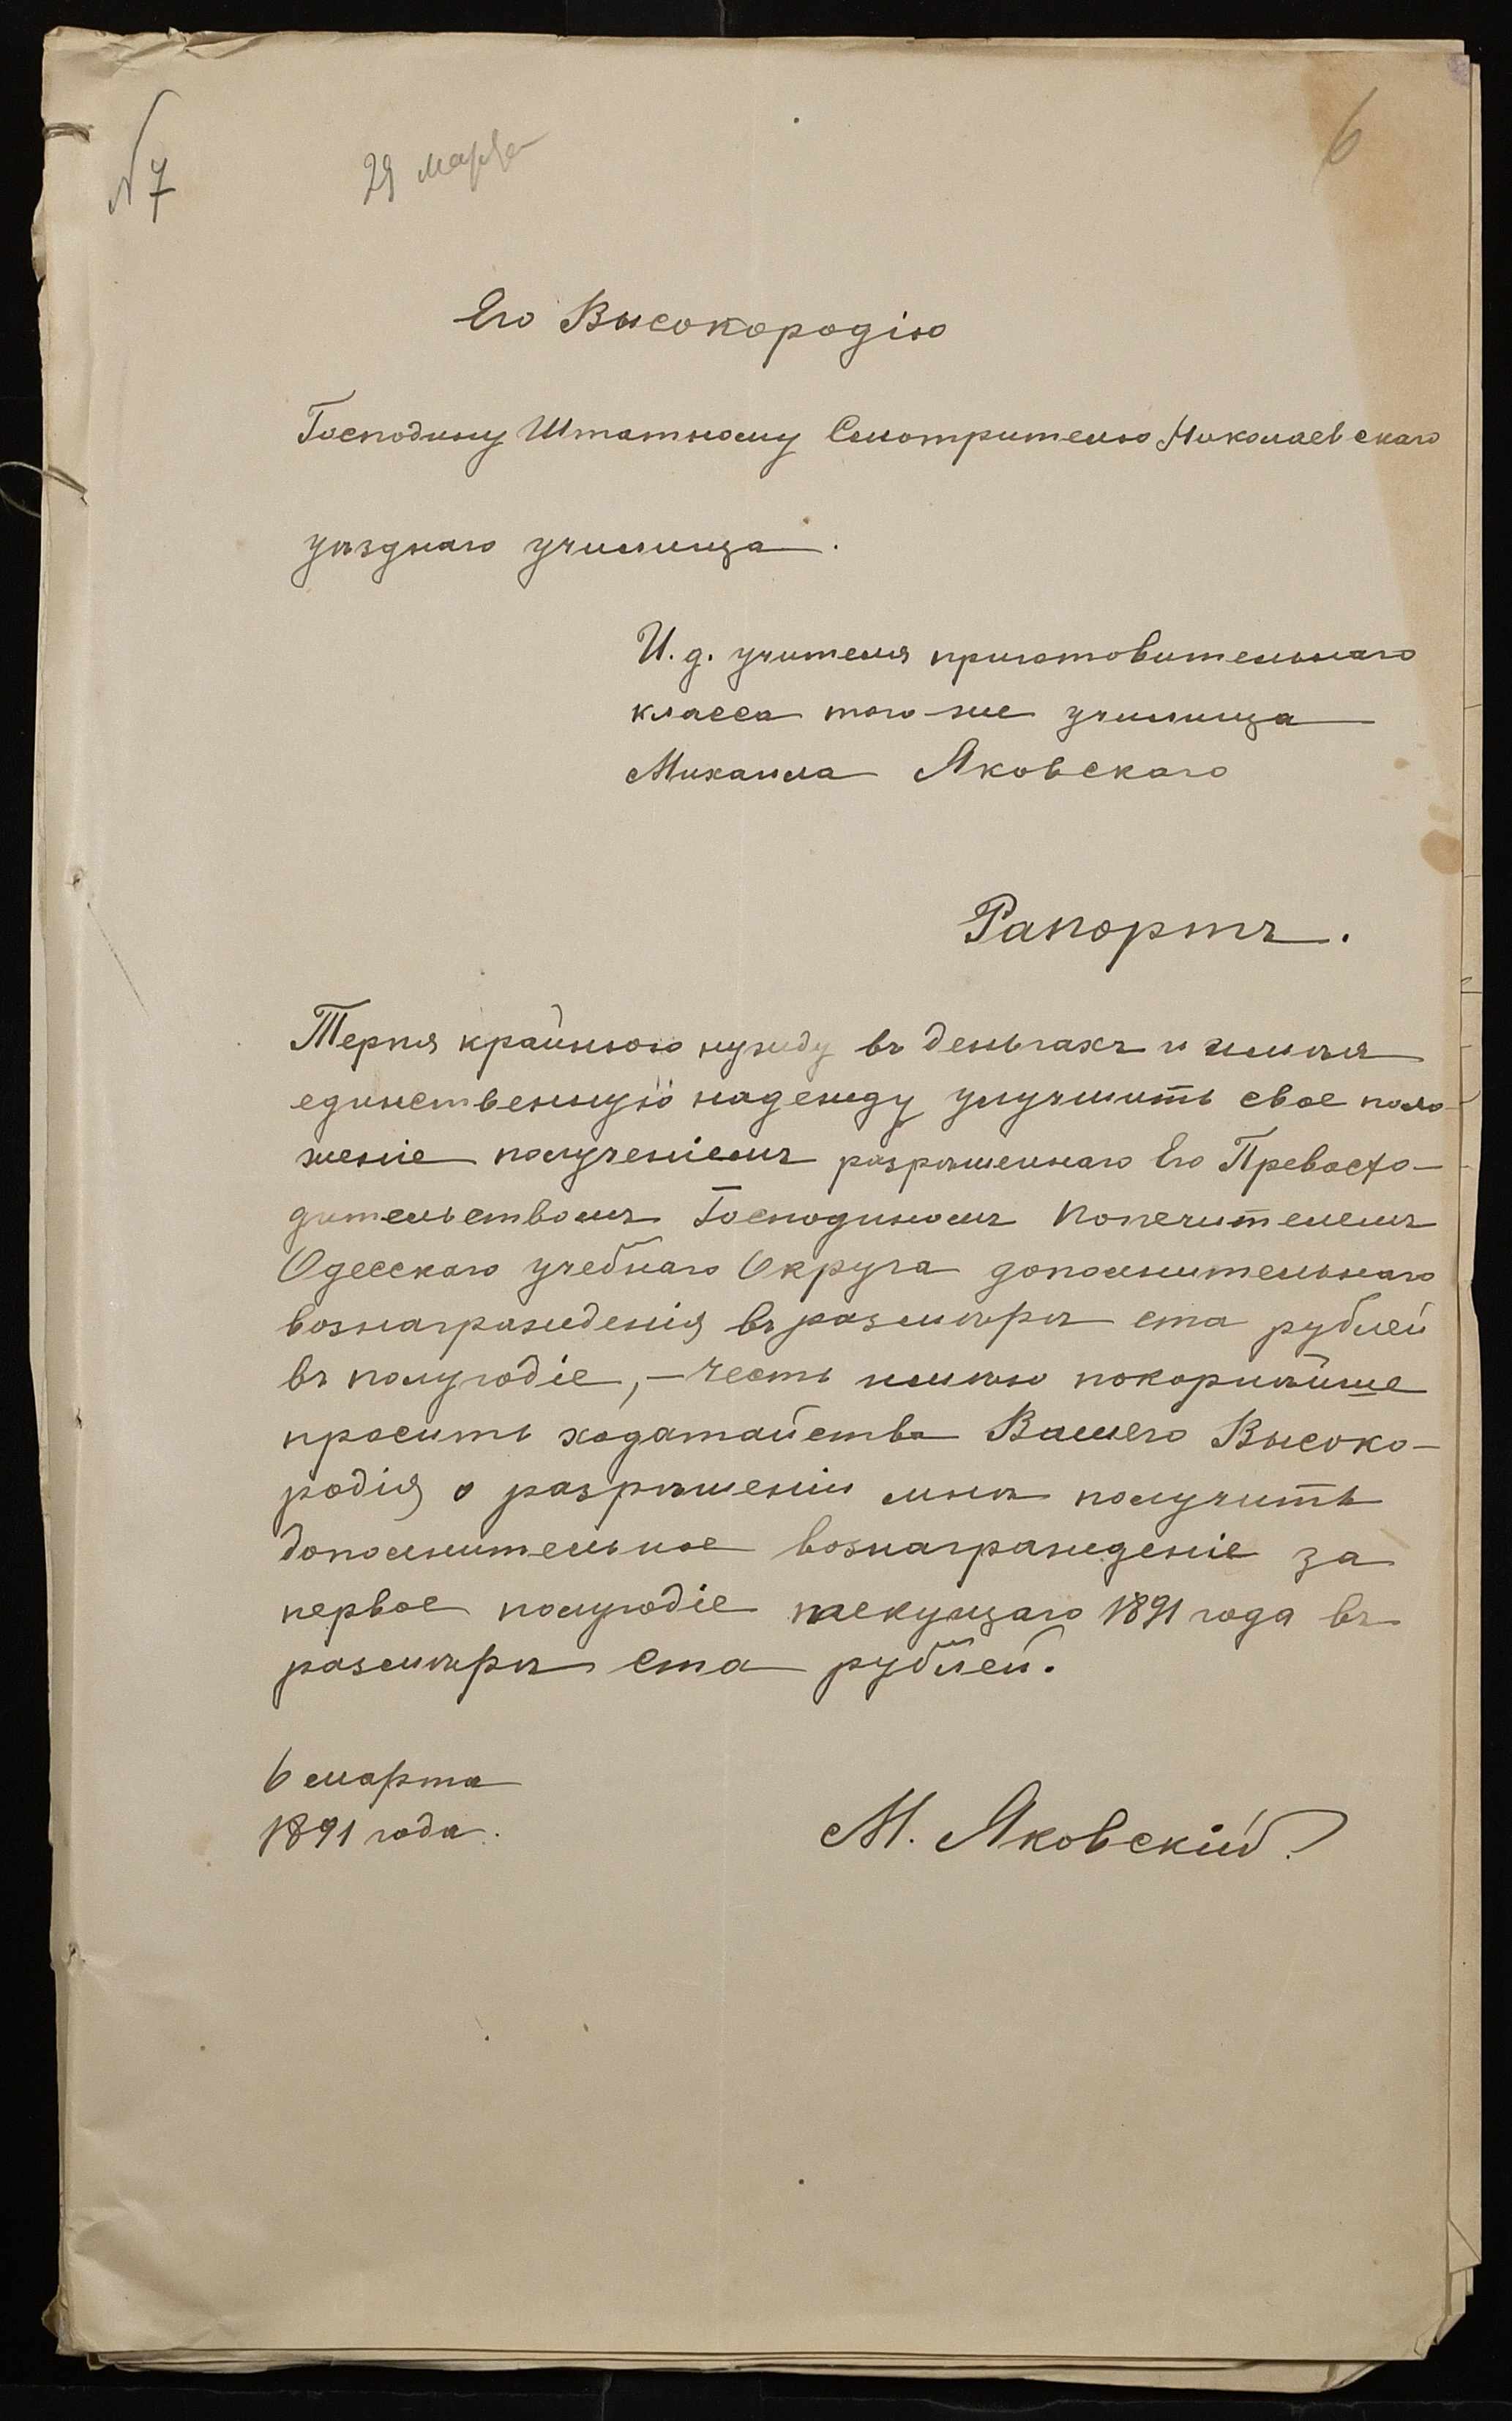 № 7
29 марта
6
Его Высокородію
Господину Штатному Смотрителю Николаевскаго
уѣзднаго училища.
И. д. учителя приготовительнаго
класса того-же училища
Михаила Яковскаго
Рапортъ.
Терпя крайнюю нужду въ деньгахъ и имѣя
единственную надежду улучшить свое поло-
женіе полученіемъ разрѣшеннаго Его Превосхо-
дительствомъ Господиномъ Попечителемъ
Одесскаго учебнаго Округа дополнительнаго
вознагражденія въ размѣрѣ ста рублей
въ полугодіе, – честь имѣю покорнѣйше
просить ходатайства Вашего Высоко-
родія о разрѣшеніи мнѣ получить
дополнительное вознагражденіе за
первое полугодіе текущаго 1891 года въ
размѣрѣ ста рублей.
6 марта
1891 года.
М. Яковскій.